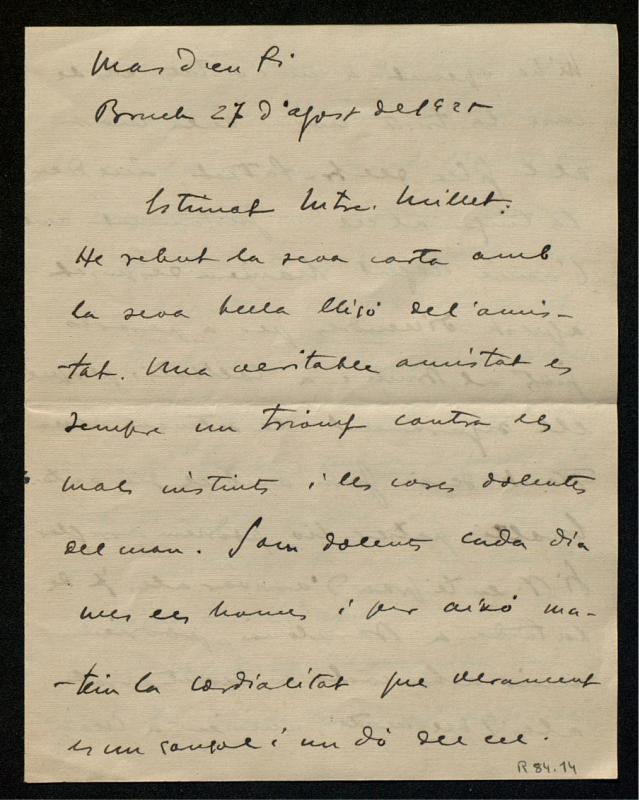 Mas d'en Pi
Bruch 27 d'agost del 1925
Estimat Mtre. Millet:
He rebut la seva carta amb
la seva bella lliçó del'amis-
-tat. Una veritable amistat es
sempre un triomf contra els
mals instints i les coses dolentes
del mon. Som dolents cada dia
mes els homes i per això ma-
-tein la cordialitat que verament
es un consol i un dó del cel.
R 84.14